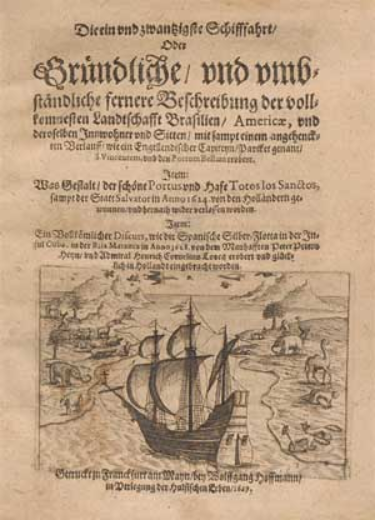 Die ein vnd zwantzigste Schifffahrt/
Oder
Gründliche/ vnd vmb-
ständliche fernere Beschreibung der voll-
kommesten Landtschafft Brasilien/ Americæ, vnd
deroselben Innwohner vnd Sitten/ mit sampt einem angehenck-
ten Verlauff/ wie ein Engelländischer Capiteyn/ Parcker genant/
S. Vincentem, vnd den Portum Bellum erobert.
Item:
Was Gestalt/ der schöne Portus vnd Hafe Totos los Sanctos,
sampt der Statt Salvator in Anno 1624. von den Holländern ge-
wonnen/ vnd hernach wider verlassen worden.
Item:
Ein Vollkömlicher Discurs, wie die Spanische Silber-Flotta in der In-
sul Cuba, in der Rivier Matanca in Anno 1628. von dem Manhafften Peter Peters
Heyn/ vnd Admiral Henrich Cornelius Lonck erobert vnd glück-
lich in Hollandt eingebracht worden.
Getruckt zu Franckfurt am Mayn/ bey Wolffgang Hoffmann/
in Verlegung der Hulsischen Erben/